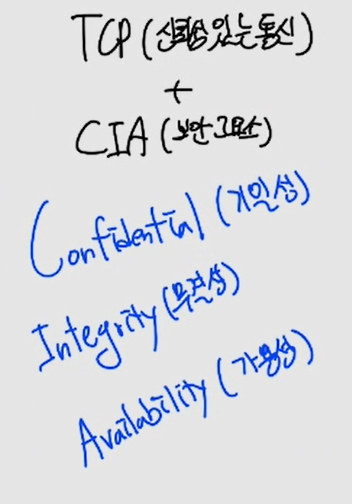 TCP (신뢰성 있는 통신)
+
CIA (보안 3요소)
Confidential (기밀성)
Integrity (무결성)
Availability (가용성)